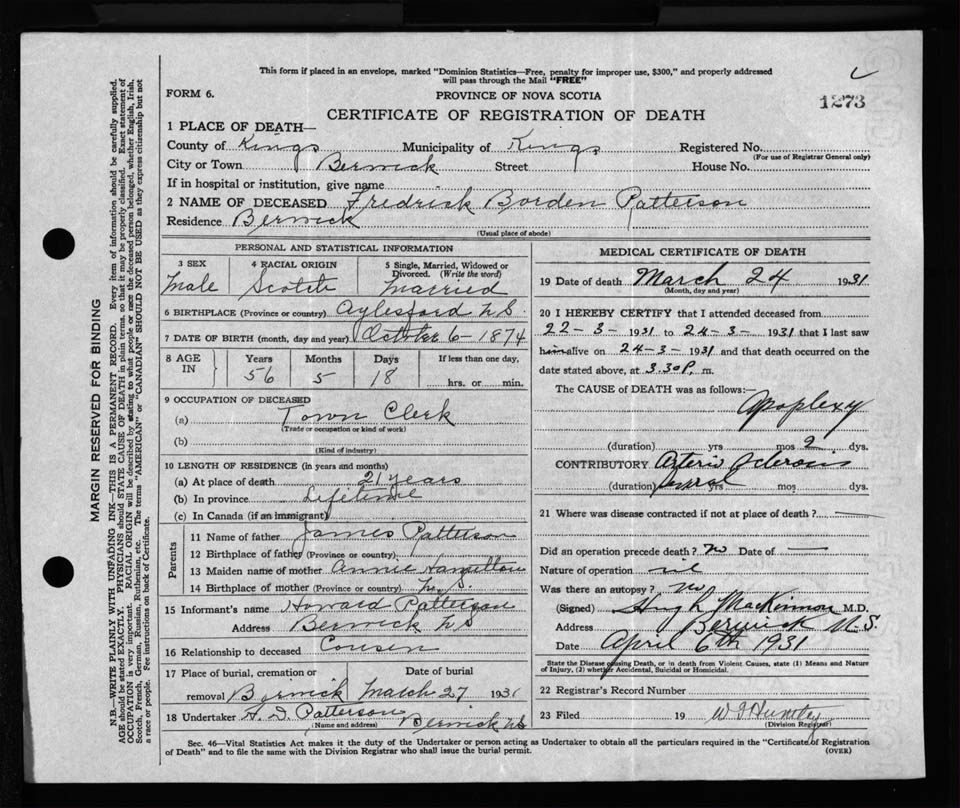 This form if placed in an envelope, marked "Dominion Statistics—Free, penalty for improper use, $300," and properly addressed
will pass through the Mail "FREE"
FORM 6.
PROVINCE OF NOVA SCOTIA
1273
CERTIFICATE OF REGISTRATION OF DEATH
1 PLACE OF DEATH—
County of Kings Municipality of Kings Registered No.
(For use of Registrar General only)
City or Town Berwick Street House No.
If in hospital or institution, give name
2 NAME OF DECEASED Fredrick Borden Patterson
Residence Berwick
(Usual place of abode)
PERSONAL AND STATISTICAL INFORMATION
3 SEX 4 RACIAL ORIGIN 5 Single, Married, Widowed or Divorced. (Write the word)
Male Scotch Married
6 BIRTHPLACE (Province or country) Aylesford N.S.
7 DATE OF BIRTH (month, day and year) October 6-1874
8 AGE IN Years Months Days If less than one day,
56 5 18 hrs. or min.
9 OCCUPATION OF DECEASED
(a) Town Clerk
(Trade or occupation or kind of work)
(b)
(Kind of industry)
10 LENGTH OF RESIDENCE (in years and months)
(a) At place of death 21 years
(b) In province Lifetime
(c) In Canada (if an immigrant)
Parents
11 Name of father James Patterson
12 Birthplace of father (Province or country)
13 Maiden name of mother Annie Hamilton
14 Birthplace of mother (Province or country) N.S.
15 Informant's name Howard Patterson
Address Berwick N S
16 Relationship to deceased Cousin
17 Place of burial, cremation or removal Date of burial
Berwick March 27 1931
18 Undertaker A. D. Patterson Berwick N.S.
(Name and address)
MEDICAL CERTIFICATE OF DEATH
19 Date of death March 24 1931
(Month, day and year)
20 I HEREBY CERTIFY that I attended deceased from
22-3-1931 to 24-3-1931 that I last saw
him alive on 24-3-1931 and that death occurred on the
date stated above, at 3.30 P. m.
The CAUSE OF DEATH was as follows:—
Apoplexy
(duration) yrs mos 2 dys.
CONTRIBUTORY Arterio Sclerosis
(duration) several yrs mos dys.
21 Where was disease contracted if not at place of death? —
Did an operation precede death? no Date of —
Nature of operation nil
Was there an autopsy? no
(Signed) Hugh MacKinnon M.D.
Address Berwick N.S.
Date April 6th 1931
State the Disease causing Death, or in death from Violent Causes, state (1) Means and Nature
of Injury, (2) whether Accidental, Suicidal or Homicidal.
22 Registrar's Record Number
23 Filed 19 Huntley
(Division Registrar)
Sec. 46—Vital Statistics Act makes it the duty of the Undertaker or person acting as Undertaker to obtain all the particulars required in the "Certificate of Registration
of Death" and to file the same with the Division Registrar who shall issue the burial permit.
(OVER)
MARGIN RESERVED FOR BINDING
N.B.—WRITE PLAINLY WITH UNFADING INK—THIS IS A PERMANENT RECORD. Every item of information should be carefully supplied.
AGE should be stated EXACTLY. PHYSICIANS should STATE CAUSE OF DEATH in plain terms, so that it may be properly classified. Exact statement of
OCCUPATION is very important. RACIAL ORIGIN will be described by stating to what people or race the deceased person belonged, whether English, Irish,
Scotch, French, German, Russian, Ruthenian, etc. The terms "AMERICAN" or "CANADIAN" SHOULD NOT BE USED as they express citizenship but not
a race or people. See instructions on back of Certificate.